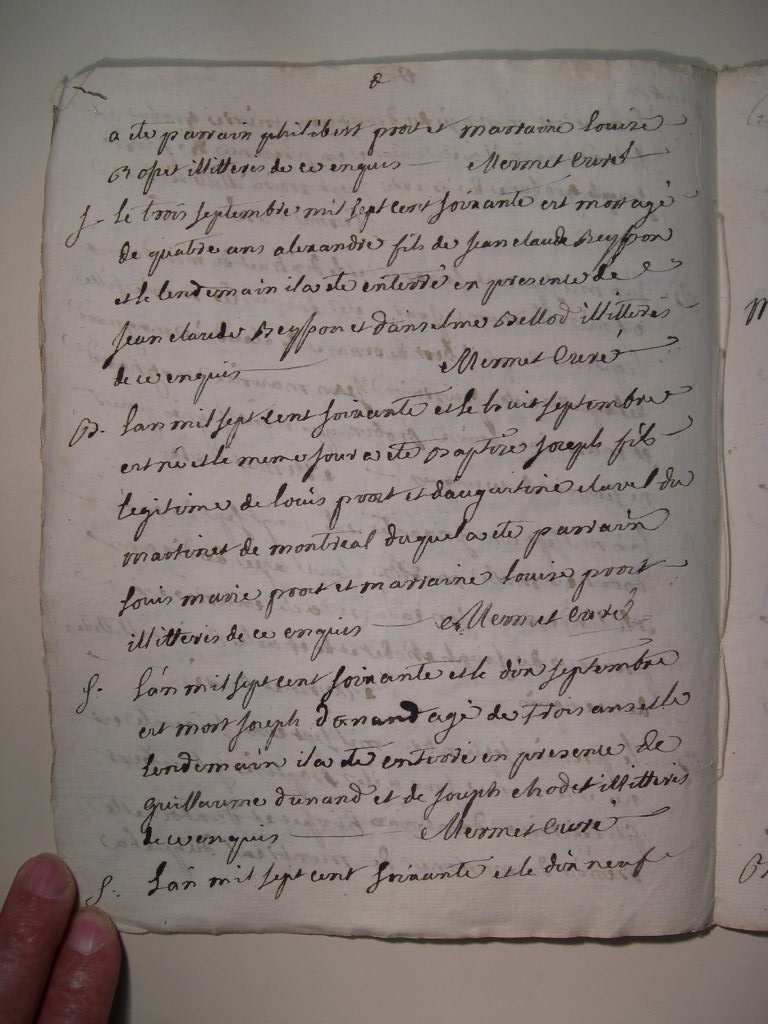 8
a ete parrain philibert prost et marraine louise
Ropet illitterés de ce enquis Mermet Curé
S. Le trois septembre mil sept cent soixante est mort agé
de quatre ans alexandre fils de jean claude Reysson
et le lendemain il a ete enterré en presence de
jean claude Reysson et d'anselme Bellod illitterés
de ce enquis Mermet Curé
B. l'an mil sept cent soixante et le huit septembre
est né et le meme jour a ete baptise joseph fils
legitime de louis prost et d'augustine clavel du
martinet de montreal duquel a ete parrain
louis marie prost et marraine louise prost
illitterés de ce enquis Mermet Curé
S. l'an mil sept cent soixante et le dix septembre
est mort joseph dunand agé de trois ans et le
lendemain il a ete enterré en presence de
guillaume dunand et de joseph chodet illitterés
de ce enquis Mermet Curé
S. l'an mil sept cent soixante et le dix neuf